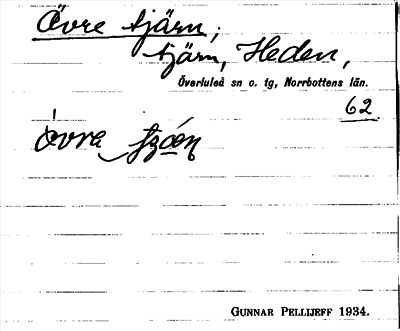 Övre tjärn;
tjärn, Heden,
Överluleå sn o. tg, Norrbottens län.
62.
övra
GUNNAR PELLIJEFF 1934.